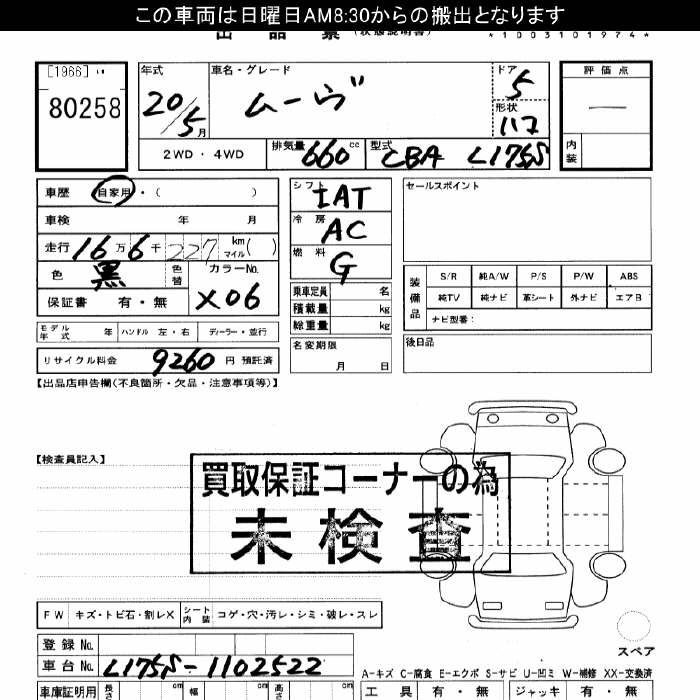 この車両は日曜日AM8:30からの搬出となります
*1003101974*
[1966]
80258
年式 車名・グレード ドア 評価点
20/5月 ムーヴ 5
形状
112
2WD・4WD 排気量 660cc 型式 CBA L175S 内装
車歴 自家用・( ) シフト IAT セールスポイント
車検 年 月 冷房 AC
走行 16万6千227 km マイル( ) 燃料 G
色 黒 色替 カラーNo. X06
保証書 有・無
乗車定員 名
積載量 kg
総重量 kg
装備品 S/R 純A/W P/S P/W ABS
純TV 純ナビ 革シート 外ナビ エアB
ナビ型番:
モデル年式 年 ハンドル 左・右 ディーラー・並行
名変期限 月 日 後日品
リサイクル料金 9260 円 預託済
【出品店申告欄(不良箇所・欠品・注意事項等)】
【検査員記入】
買取保証コーナーの為
未検査
FW キズ・トビ石・割レX シート内装 コゲ・穴・汚レ・シミ・破レ・スレ
スペア
登録No.
車台No. L175S-1102522
A-キズ C-腐食 E-エクボ S-サビ U-凹ミ W-補修 XX-交換済
車庫証明用 長さ cm 幅 cm 高さ cm 工具 有・無 ジャッキ 有・無